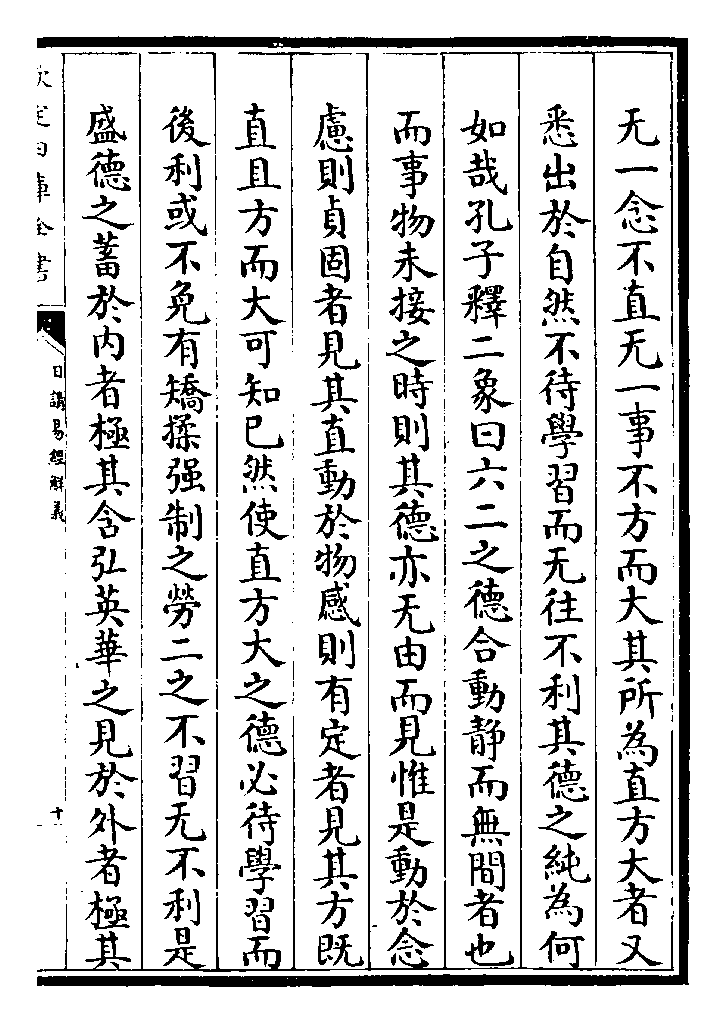 无一念不直无一事不方而大其所為直方大者又
悉出於自然不待學習而无往不利其德之純為何
如哉孔子釋二象曰六二之德合動靜而無間者也
而事物未接之時則其德亦无由而見惟是動於念
慮則貞固者見其直動於物感則有定者見其方既
直且方而大可知已然使直方大之德必待學習而
後利或不免有矯揉强制之勞二之不習无不利是
盛德之蓄於内者極其含弘英華之見於外者極其
欽定四庫全書
日講易經解義
十